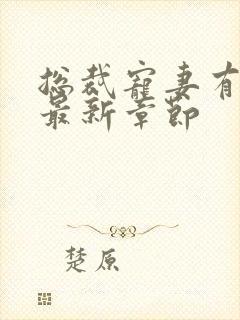 总裁宠妻有
最新章节
楚原